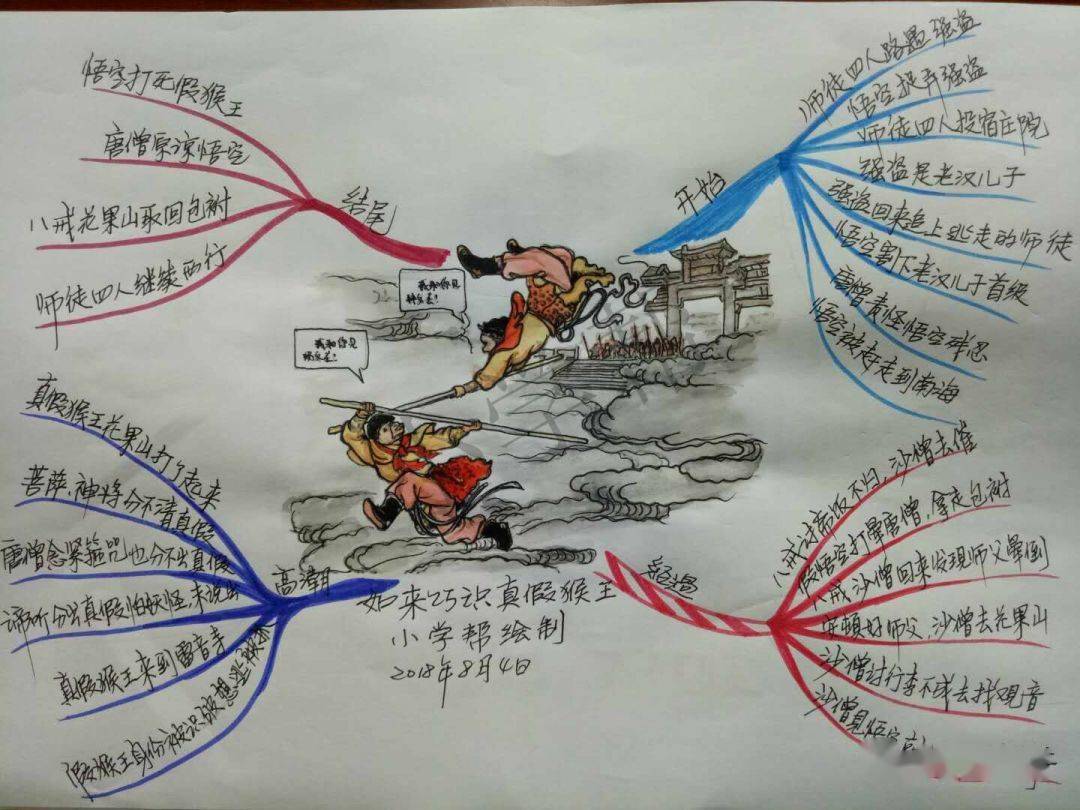 开始
师徒四人路遇强盗
悟空捉弄强盗
师徒四人投宿庄院
强盗是老汉儿子
强盗回来追上逃走的师徒
悟空割下老汉儿子首级
唐僧责怪悟空残忍
悟空被赶走到南海
经过
八戒讨斋饭不归,沙僧去催
假悟空打晕唐僧,拿走包袱
八戒沙僧回来发现师父晕倒
安顿好师父,沙僧去花果山
沙僧讨行李不成去找观音
沙僧见悟空
高潮
真假猴王花果山打了起来
菩萨、神将分不清真假
唐僧念紧箍咒也分不出真假
谛听分出真假怕妖怪,未说出
真假猴王来到雷音寺
假猴王身份被识破想逃被抓
结尾
悟空打死假猴王
唐僧原谅悟空
八戒花果山取回包袱
师徒四人继续西行
我和你见
我和你见
如来巧识真假猴王
小学帮绘制
2018年8月4日